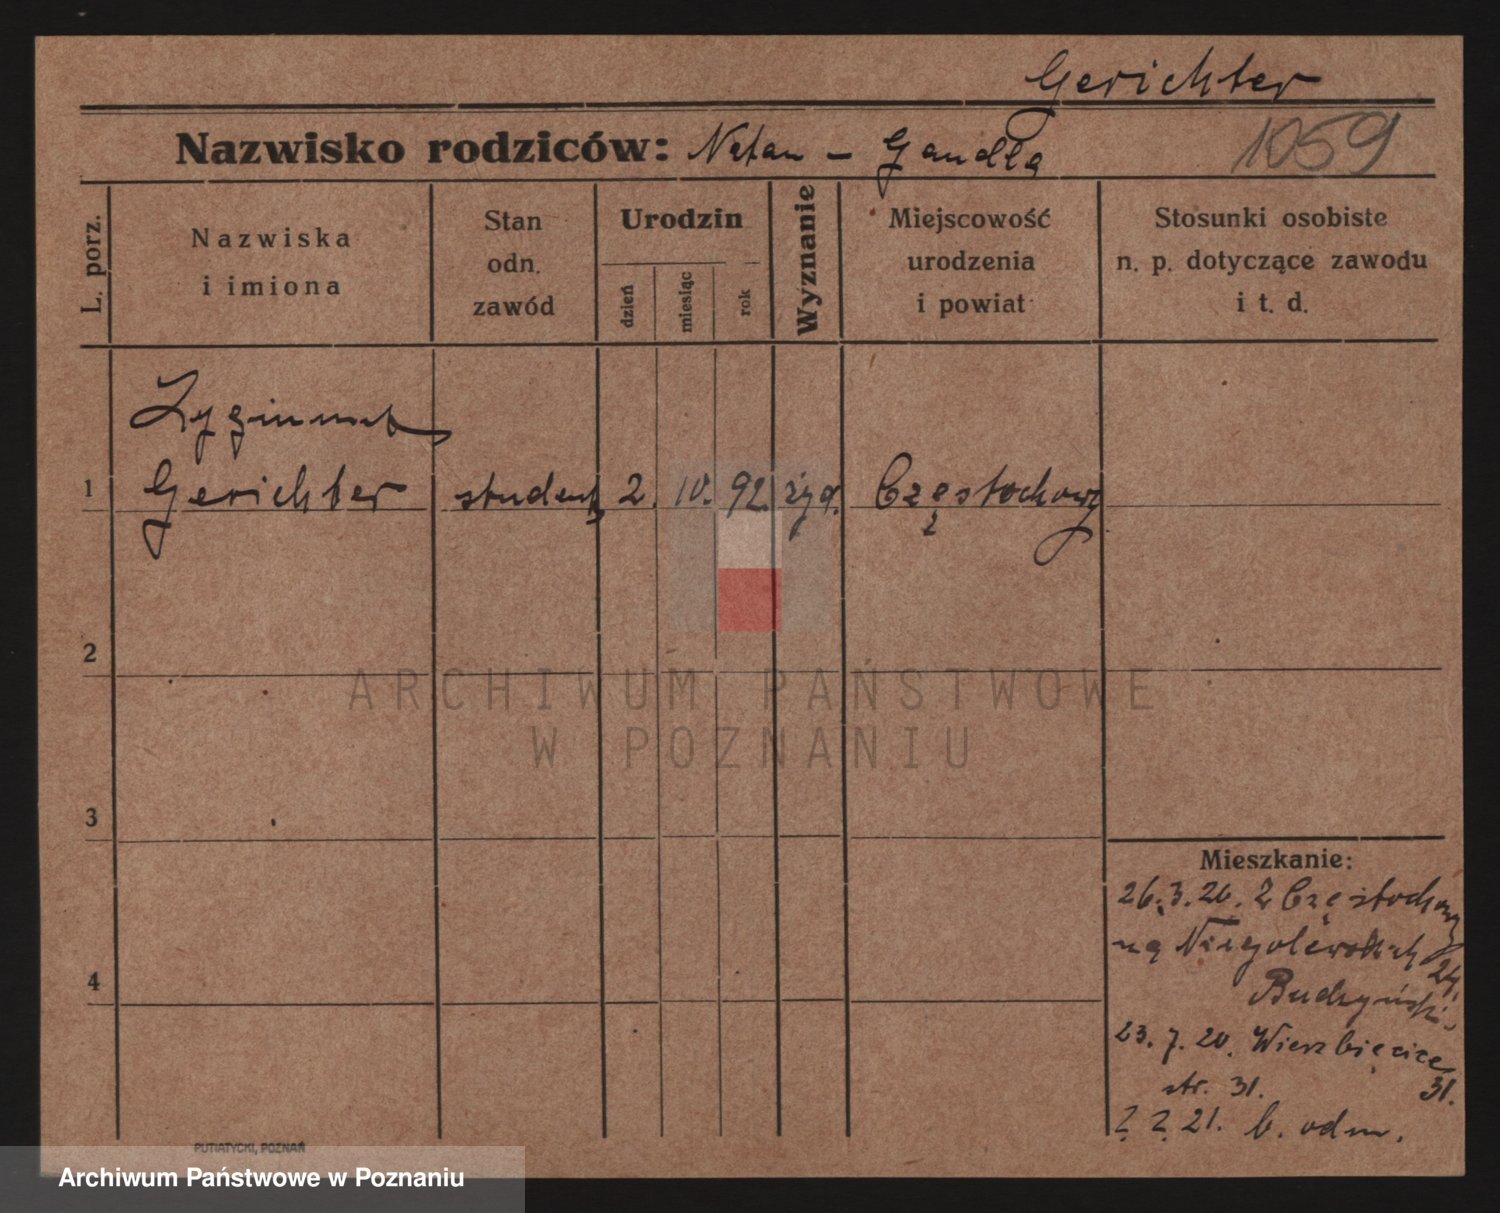 Gerichter
Nazwisko rodziców: Natan - Gandla
1059
L. porz.
Nazwiska
i imiona
Stan
odn.
zawód
Urodzin
dzień
miesiąc
rok
Wyznanie
Miejscowość
urodzenia
i powiat
Stosunki osobiste
n. p. dotyczące zawodu
i t. d.
Zygmunt
1 Gerichter student 2. 10. 92. żyd. Częstochowa
2
3
4
Mieszkanie:
26.3.20. Z Częstochowy
na Niegolewskich 24.
Budzyński
23.7.20. Wierzbięcice 31.
str. 31.
2 2 21. b. odm.
PUTIATYCKI, POZNAŃ
ARCHIWUM PAŃSTWOWE
W POZNANIU
Archiwum Państwowe w Poznaniu